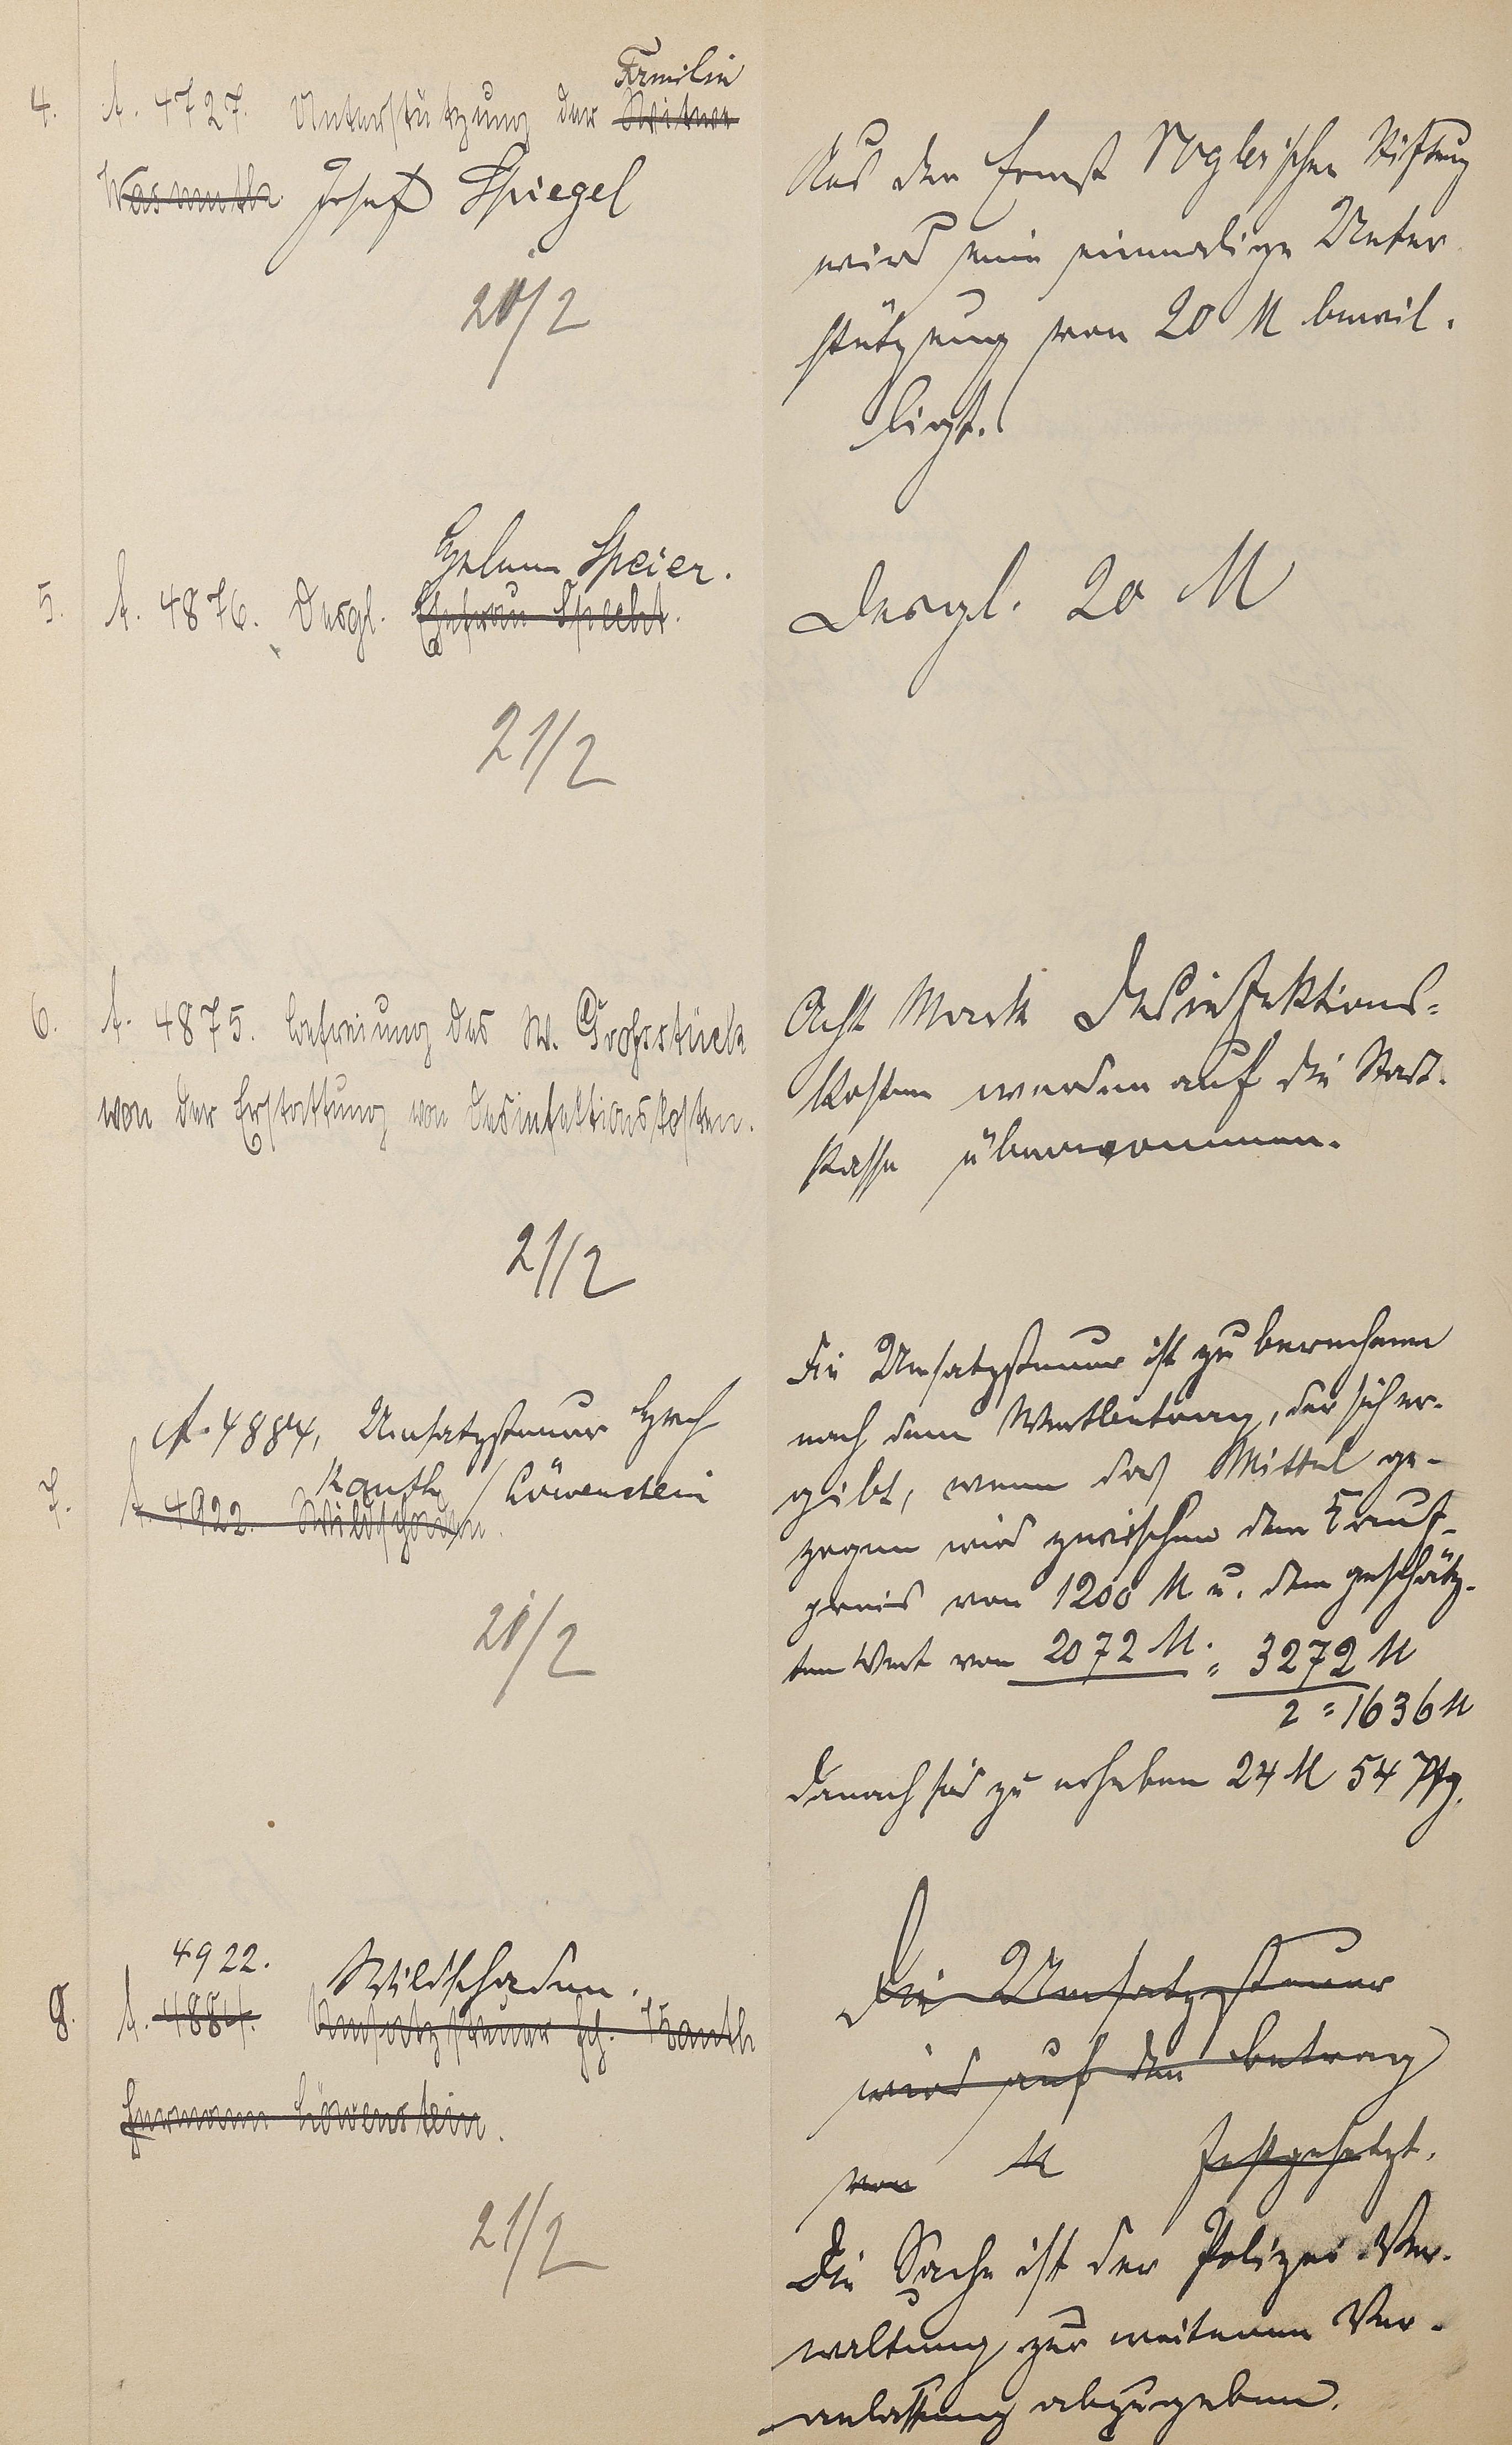 4. A. 4727. Unterstützung der Familie Witwe
Wasmuth Josef Spiegel
21/2
Aus der Ernst Vogler'schen Stiftung
wird eine einmalige Unter
stützung von 20 M bewil-
ligt.
Speier.
5. A. 4876. Desgl. Ehefrau Specht.
21/2
Desgl. 20 M
6. A. 4875. Befreiung des W. Großstück
von der Erstattung von Desinfektionskosten.
21/2
Acht Mark Desinfektions-
kosten werden auf die Stadt-
kasse übernommen.
A. 4884, Umsatzsteuer
Kauth / Löwenstein
7. A. 4922. Wildschaden.
21/2
Die Umsatzsteuer ist zu berechnen
nach dem Wertbetrag, der sich er-
gibt, wenn das Mittel ge-
zogen wird zwischen dem Kauf-
preis von 1200 M u. dem geschätz-
ten Wert von 2072 M. = 3272 M
2 = 1636 M
Danach sind zu erheben 24 M 54 Pfg.
4922. Wildschaden.
8. A. 4884. Umsatzsteuer Kauth
Hermann Löwenstein.
21/2
Die Umsatzsteuer
wird auf den Betrag
von M festgesetzt.
Die Sache ist der Polizei-Ver-
waltung zur weiteren Ver-
anlassung abzugeben.